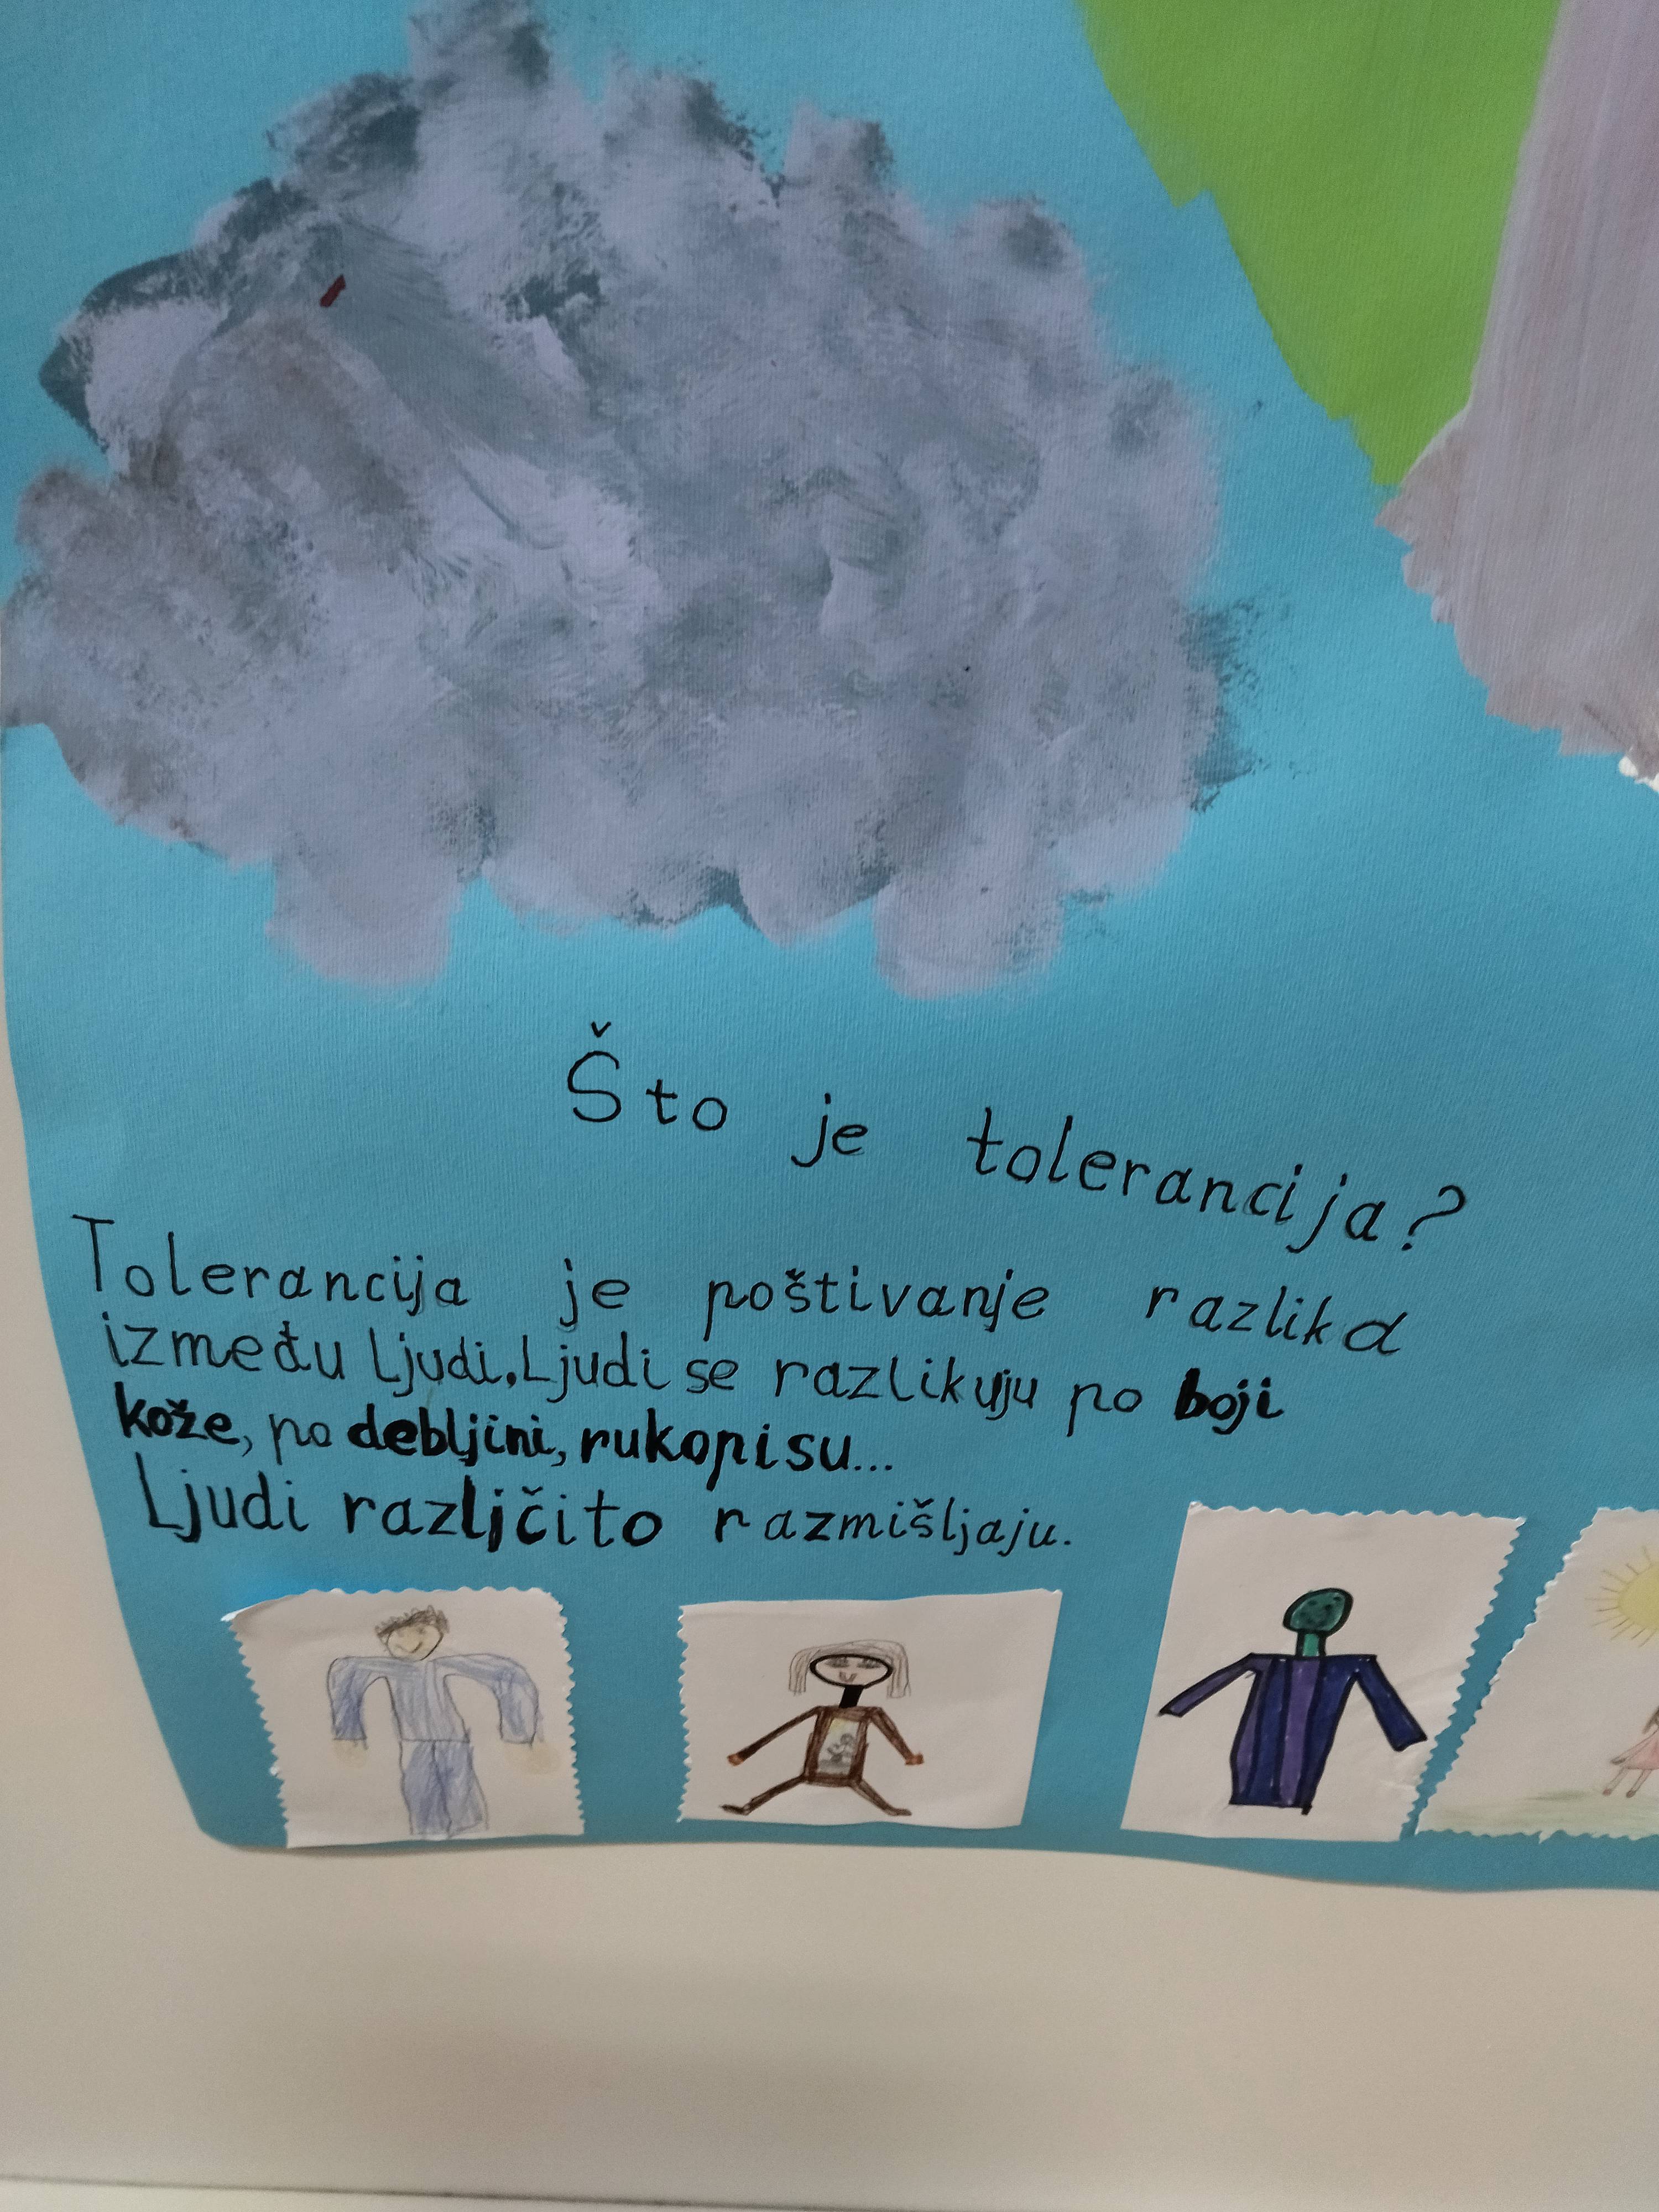 Što je tolerancija?
Tolerancija je poštivanje razlika
između ljudi. Ljudi se razlikuju po boji
kože, po debljini, rukopisu...
Ljudi razljčito razmišljaju.